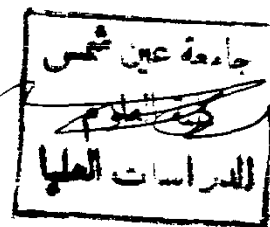 جامعة عين شمس
كلية العلوم
الدراسات العليا